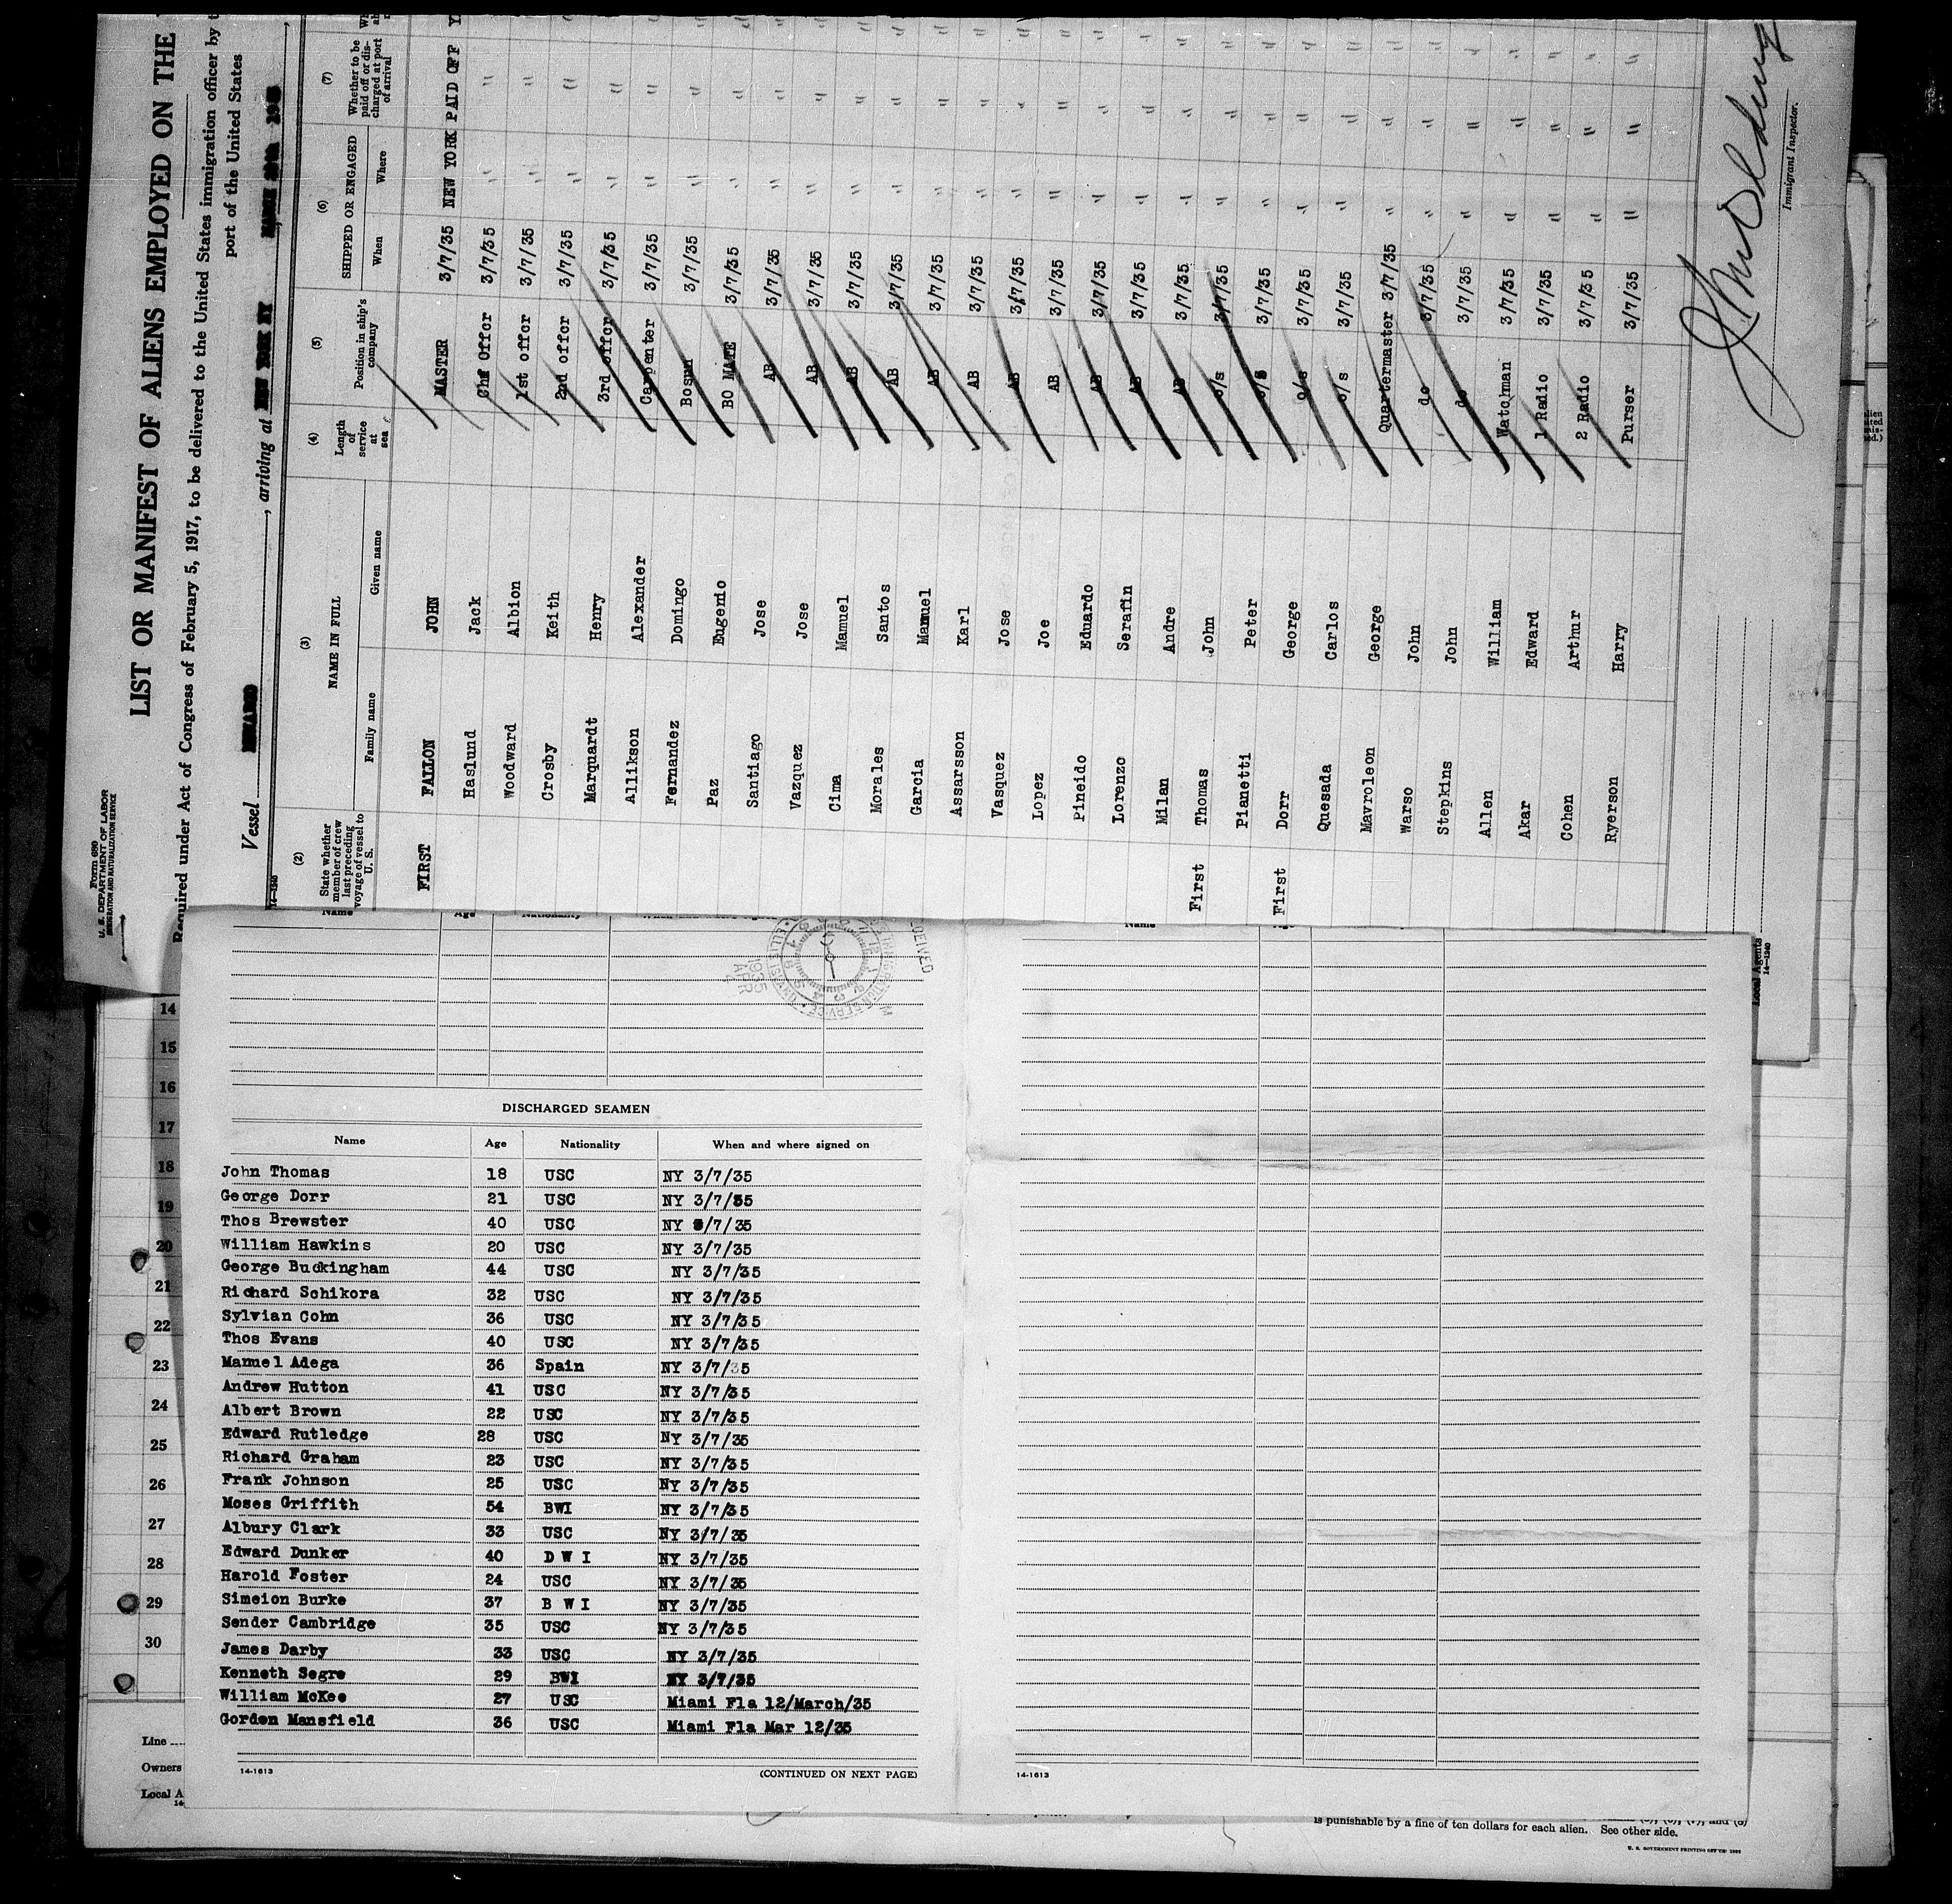 Form 680
U. S. DEPARTMENT OF LABOR
IMMIGRATION AND NATURALIZATION SERVICE
LIST OR MANIFEST OF ALIENS EMPLOYED ON THE
Required under Act of Congress of February 5, 1917, to be delivered to the United States immigration officer by
port of the United States
Vessel , arriving at NEW YORK NY
14-1240
(2) (3) (4) (5) (6) (7)
State whether member of crew last preceding voyage of vessel to U. S.
NAME IN FULL
Family name Given name
Length of service at sea
Position in ship's company
SHIPPED OR ENGAGED
When Where
Whether to be paid off or discharged at port of arrival
FIRST FALLON JOHN MASTER 3/7/35 NEW YORK PAID OFF Y
Haslund Jack Chf Offcr 3/7/35 " "
Woodward Albion 1st offcr 3/7/35 " "
Crosby Keith 2nd offcr 3/7/35 " "
Marquardt Henry 3rd offcr 3/7/35 " "
Allikson Alexander Carpenter 3/7/35 " "
Fernandez Domingo Bosun 3/7/35 " "
Paz Eugenio BO MATE 3/7/35 " "
Santiago Jose AB 3/7/35 " "
Vazquez Jose AB 3/7/35 " "
Cima Mamuel AB 3/7/35 " "
Morales Santos AB 3/7/35 " "
Garcia Manuel AB 3/7/35 " "
Assarsson Karl AB 3/7/35 " "
Vasquez Jose AB 3/7/35 " "
Lopez Joe AB 3/7/35 " "
Pineido Eduardo AB 3/7/35 " "
Lorenzo Serafin AB 3/7/35 " "
Milan Andre AB 3/7/35 " "
First Thomas John o/s 3/7/35 " "
Pianetti Peter o/s 3/7/35 " "
First Dorr George o/s 3/7/35 " "
Quesada Carlos o/s 3/7/35 " "
Mavroleon George Quartermaster 3/7/35 " "
Warso John do 3/7/35 " "
Stepkins John do 3/7/35 " "
Allen William Watchman 3/7/35 " "
Akar Edward 1 Radio 3/7/35 " "
Cohen Arthur 2 Radio 3/7/35 " "
Ryerson Harry Purser 3/7/35 " "
Immigrant Inspector.
Local Agents
14-1240
Name Age Nationality
Name
RECEIVED
IMMIGRATION SERVICE
ELLIS ISLAND
1935 APR
DISCHARGED SEAMEN
Name Age Nationality When and where signed on
John Thomas 18 USC NY 3/7/35
George Dorr 21 USC NY 3/7/35
Thos Brewster 40 USC NY 3/7/35
William Hawkins 20 USC NY 3/7/35
George Buckingham 44 USC NY 3/7/35
Richard Schikora 32 USC NY 3/7/35
Sylvian Cohn 36 USC NY 3/7/35
Thos Evans 40 USC NY 3/7/35
Manuel Adega 36 Spain NY 3/7/35
Andrew Hutton 41 USC NY 3/7/35
Albert Brown 22 USC NY 3/7/35
Edward Rutledge 28 USC NY 3/7/35
Richard Graham 23 USC NY 3/7/35
Frank Johnson 25 USC NY 3/7/35
Moses Griffith 54 BWI NY 3/7/35
Albury Clark 33 USC NY 3/7/35
Edward Dunker 40 D W I NY 3/7/35
Harold Foster 24 USC NY 3/7/35
Simeion Burke 37 B W I NY 3/7/35
Sender Cambridge 35 USC NY 3/7/35
James Darby 33 USC NY 3/7/35
Kenneth Segre 29 BWI NY 3/7/35
William McKee 27 USC Miami Fla 12/March/35
Gorden Mansfield 36 USC Miami Fla Mar 12/35
14-1613
(CONTINUED ON NEXT PAGE)
14-1613
14
15
16
17
18
19
20
21
22
23
24
25
26
27
28
29
30
Line
Owners
Local A
14
is punishable by a fine of ten dollars for each alien. See other side.
U. S. GOVERNMENT PRINTING OFFICE